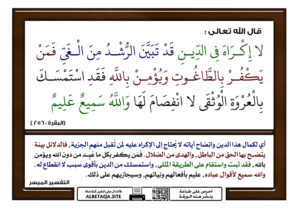 قال الله تعالى :
لَا إِكْرَاهَ فِي الدِّينِ قَدْ تَبَيَّنَ الرُّشْدُ مِنَ الْغَيِّ فَمَنْ
يَكْفُرْ بِالطَّاغُوتِ وَيُؤْمِنْ بِاللَّهِ فَقَدِ اسْتَمْسَكَ
بِالْعُرْوَةِ الْوُثْقَى لَا انْفِصَامَ لَهَا وَاللَّهُ سَمِيعٌ عَلِيمٌ
(البقرة : ٢٥٦)
أي لكمال هذا الدين واتضاح آياته لا يحتاج إلى الإكراه عليه لمن تُقبل منهم الجزية، فالدلائل بينة
يتضح بها الحق من الباطل، والهدى من الضلال. فمن يكفر بكل ما عُبِد من دون الله ويؤمن
بالله، فقد ثبت واستقام على الطريقة المثلى، واستمسك من الدين بأقوى سبب لا انقطاع له.
والله سميع لأقوال عباده، عليم بأفعالهم ونياتهم، وسيجازيهم على ذلك.
التفسير الميسر
ALBETAQA.SITE